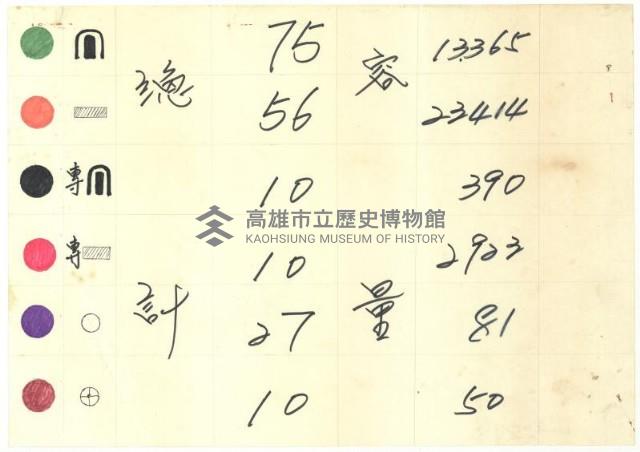 75 13365
總 56 容 23414
專 10 390
高雄市立歷史博物館
KAOHSIUNG MUSEUM OF HISTORY
專 10 2923
計 27 量 81
10 50